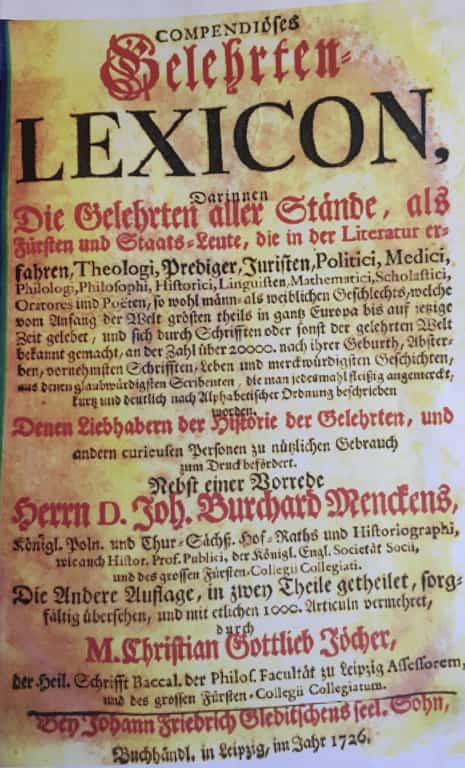 COMPENDIÖSES
Gelehrten-
LEXICON,
Darinnen
Die Gelehrten aller Stände, als
Fürsten und Staats-Leute, die in der Literatur er-
fahren, Theologi, Prediger, Juristen, Politici, Medici,
Philologi, Philosophi, Historici, Linguisten, Mathematici, Scholastici,
Oratores und Poëten, so wohl männ- als weiblichen Geschlechts, welche
vom Anfang der Welt grösten theils in gantz Europa bis auf jetzige
Zeit gelebet, und sich durch Schrifften oder sonst der gelehrten Welt
bekannt gemacht, an der Zahl über 20000. nach ihrer Geburth, Abster-
ben, vornehmsten Schrifften, Leben und merckwürdigsten Geschichten,
aus denen glaubwürdigsten Scribenten, die man jedesmahl fleißig angemercket,
kurtz und deutlich nach Alphabetischer Ordnung beschrieben
worden.
Denen Liebhabern der Historie der Gelehrten, und
andern curieusen Personen zu nützlichen Gebrauch
zum Druck befördert.
Nebst einer Vorrede
Herrn D. Joh. Burchard Menckens,
Königl. Poln. und Chur-Sächß. Hof-Raths und Historiographi,
wie auch Histor. Prof. Publici, der Königl. Engl. Societät Socii,
und des grossen Fürsten-Collegii Collegiati.
Die Andere Auflage, in zwey Theile getheilet, sorg-
fältig übersehen, und mit etlichen 1000. Articuln vermehret,
durch
M. Christian Gottlieb Jöcher,
der Heil. Schrifft Baccal. der Philos. Facultät zu Leipzig Assessorem,
und des grossen Fürsten-Collegii Collegiatum.
Bey Johann Friedrich Gleditschens seel. Sohn,
Buchhändl. in Leipzig, im Jahr 1726.